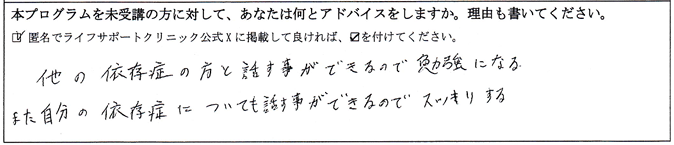 本プログラムを未受講の方に対して、あなたは何とアドバイスをしますか。理由も書いてください。
☑ 匿名でライフサポートクリニック公式 X に掲載して良ければ、☑を付けてください。
他の依存症の方と話す事ができるので勉強になる
また自分の依存症についても話す事ができるのでスッキリする